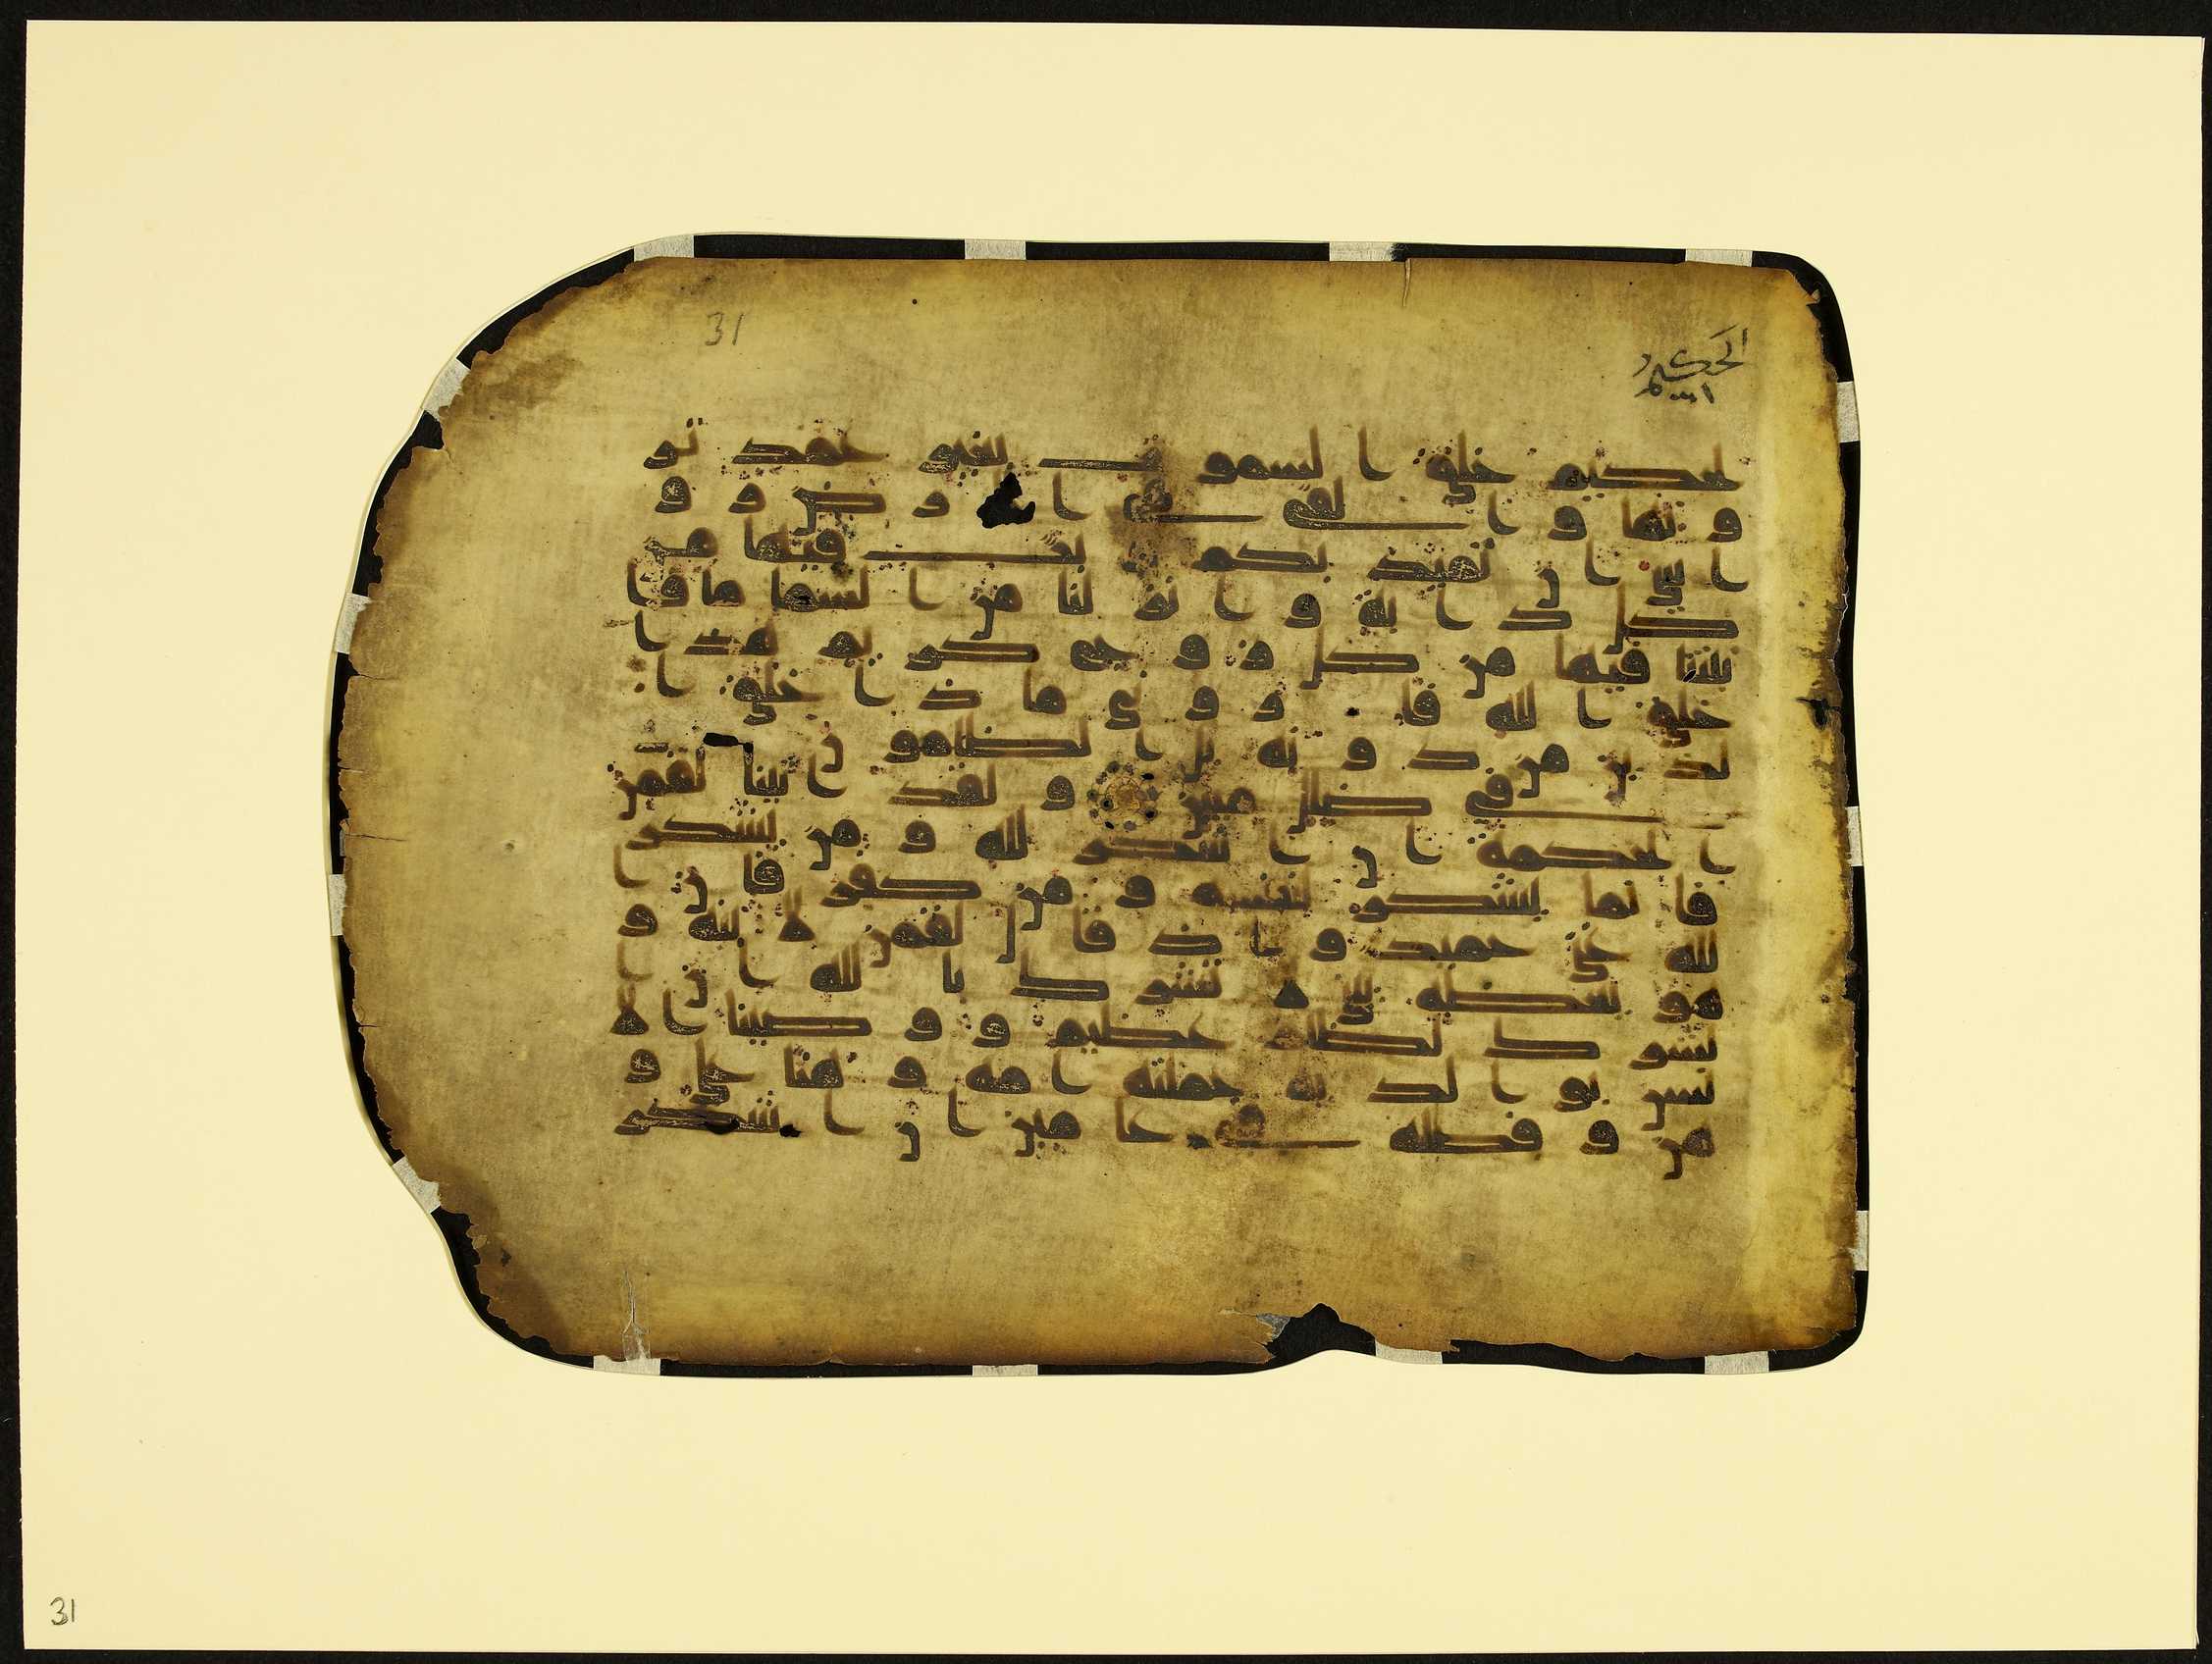 31
الحكيم
لحكيم خلق السموت بغير عمد تر
ونها والقى فى الارض رو
اسى ان تميد بكم وبث فيها من
كل دابة وانزلنا من السما ما فا
نبتنا فيها من كل زوج كريم هذا
خلق الله فارونى ماذا خلق ا
لذين من دونه بل الظلمون
فى ضلل مبين ولقد اتينا لقمن
الحكمة ان اشكر لله ومن يشكر
فانما يشكر لنفسه ومن كفر فان ا
لله غنى حميد واذ قال لقمن لابنه و
هو يعظه يبنى لا تشرك بالله ان ا
لشرك لظلم عظيم ووصينا الا
نسن بولديه حملته امه وهنا على و
هن وفصله فى عامين ان اشكر
31